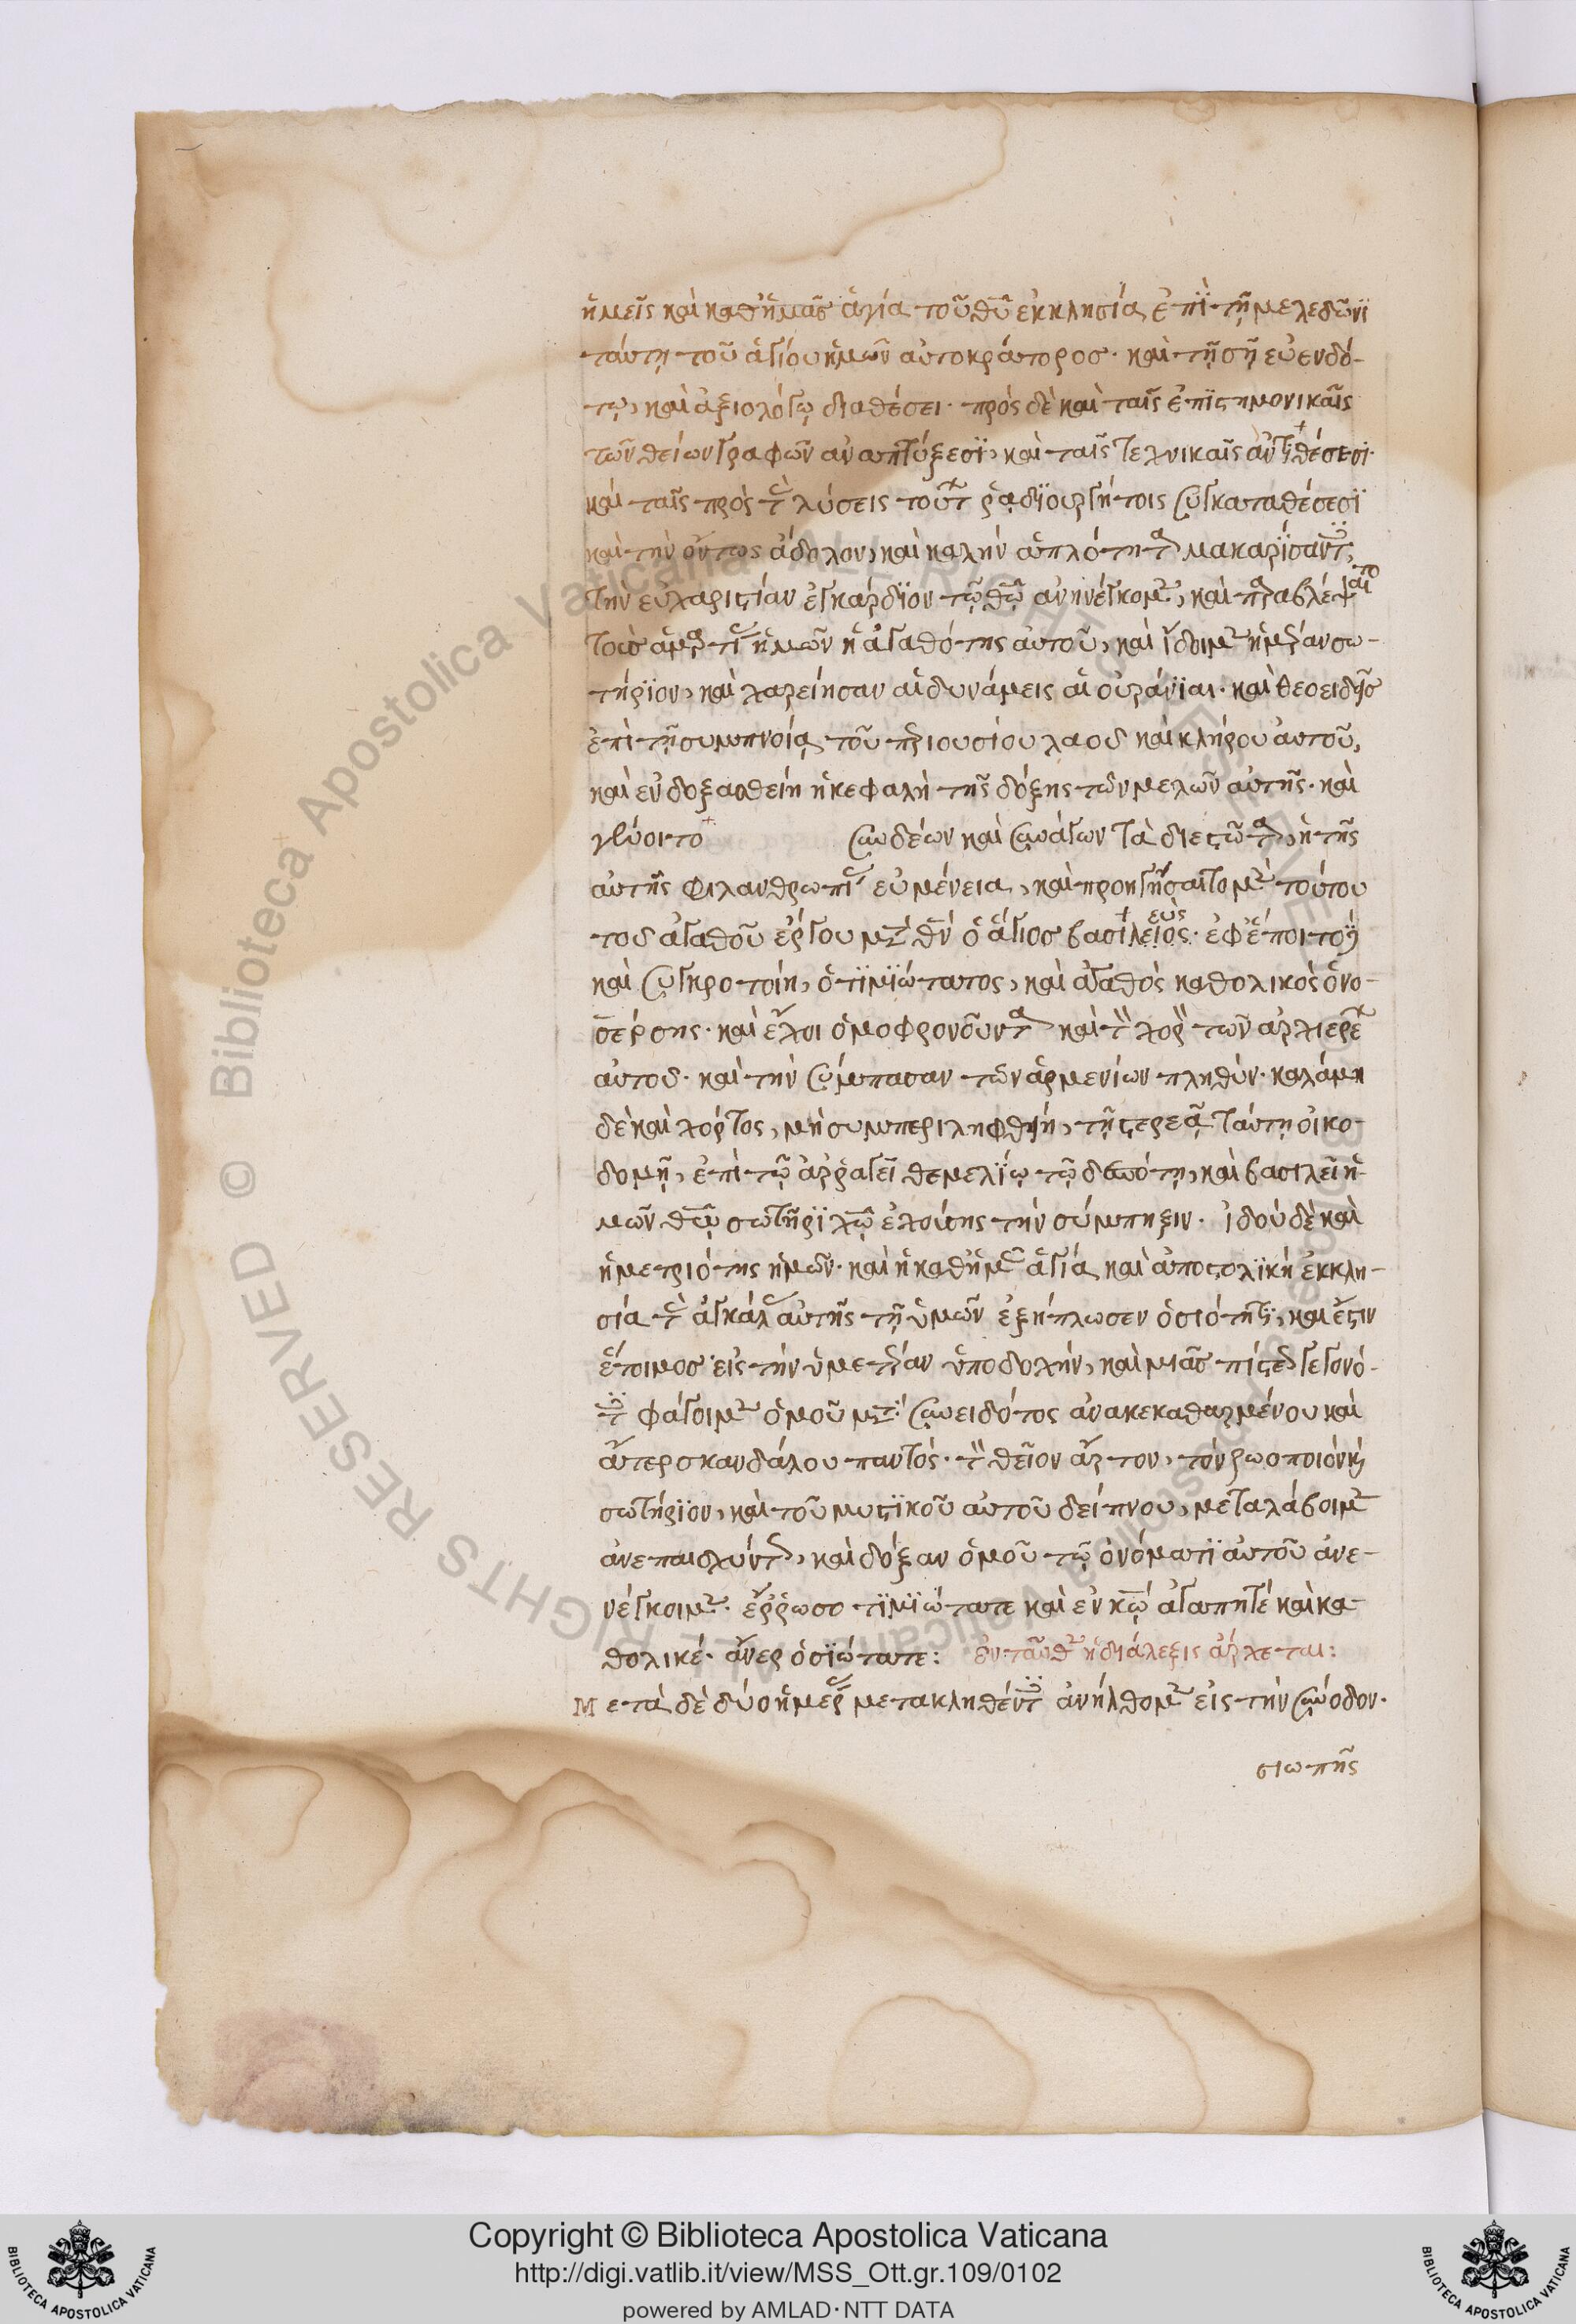 ἡμεῖς καὶ καθ' ἡμᾶς ἁγία τοῦ θυ ἐκκλησία, ἐπὶ τῇ μελεδῶνι
ταύτῃ τοῦ ἁγίου ἡμῶν αὐτοκράτορος· καὶ τῇ σῇ εὐενδό-
τῳ, καὶ ἀξιολόγῳ διαθέσει· πρὸς δὲ καὶ ταῖς ἐπιστημονικαῖς
τῶν θείων γραφῶν ἀναπτύξεσι, καὶ ταῖς τεχνικαῖς ἀντιθέσεσι·
καὶ ταῖς πρὸς τὰς λύσεις τούτων ῥᾳδιουργήτοις συγκαταθέσεσι
καὶ τὴν ὄντως ἄδολον, καὶ καλὴν ἁπλότητα μακαρίσαντες,
τὴν εὐχαριστίαν ἐγκάρδιον τῷ θῷ ἀνηνέγκομεν, καὶ παραβλέψαιτο
τὰς ἁμαρτίας ἡμῶν ἡ ἀγαθότης αὐτοῦ, καὶ ἴδοιμεν ἡμέραν σω-
τήριον, καὶ χαρείησαν αἱ δυνάμεις αἱ οὐράνιαι· καὶ θεοειδεῖς
ἐπὶ τῇ συμπνοίᾳ τοῦ περιουσίου λαοῦ καὶ κλήρου αὐτοῦ,
καὶ ἐνδοξασθείη ἡ κεφαλὴ τῆς δόξης τῶν μελῶν αὐτῆς· καὶ
γένοιτο συνδέων καὶ συνάγων τὰ διεστῶτα, ἡ τῆς
αὐτῆς φιλανθρωπίας εὐμένεια, καὶ προηγήσαιτο μὲν τούτου
τοῦ ἀγαθοῦ ἔργου μετὰ θν ὁ ἅγιος βασιλειος εὺς· ἐφέποιτο καὶ
καὶ συγκροτοίη, ὁ τιμιώτατος, καὶ ἀγαθὸς καθολικὸς ὁ νο-
σέρσης· καὶ ἔχοι ὁμοφρονοῦντα καὶ τὸν χορὸν τῶν ἀρχιερέων
αὐτοῦ· καὶ τὴν σύμπασαν τῶν ἀρμενίων πληθύν· καλάμη
δὲ καὶ χόρτος, μὴ συμπεριληφθείη, τῇ στερεᾷ ταύτῃ οἰκο-
δομῇ, ἐπὶ τῷ ἀρραγεῖ θεμελίῳ τῷ δεσπότῃ, καὶ βασιλεῖ ἡ-
μῶν θῷ σωτῆρι χῷ ἐχούσης τὴν σύμπηξιν· ἰδοὺ δὲ καὶ
ἡ μετριότης ἡμῶν· καὶ ἡ καθ' ἡμᾶς ἁγία καὶ ἀποστολικὴ ἐκκλη-
σία τὰς ἀγκάλας αὐτῆς τῇ ὑμῶν ἐξήπλωσεν ὁσιότητι, καὶ ἔστιν
ἕτοιμος εἰς τὴν ὑμετέραν ὑποδοχήν, καὶ μιᾶς πίστεως γεγονό-
τες φάγοιμεν ὁμοῦ μετὰ συνειδότος ἀνακεκαθαρμένου καὶ
ἄτερ σκανδάλου παντός· τὸν θεῖον ἄρτον, τὸν ζωοποιὸν καὶ
σωτήριον, καὶ τοῦ μυστικοῦ αὐτοῦ δείπνου, μεταλάβοιμεν
ἀνεπαισχύντως, καὶ δόξαν ὁμοῦ τῷ ὀνόματι αὐτοῦ ἀνε-
νέγκοιμεν· ἔρρωσο τιμιώτατε καὶ ἐν κῷ ἀγαπητὲ καὶ κα-
θολικέ· ἄνερ ὁσιώτατε: ἐνταῦθα ἡ διάλεξις ἄρχεται:
Μετὰ δὲ δύο ἡμέρας μετακληθέντες ἀνήλθομεν εἰς τὴν σύνοδον·
σιωπῆς
Copyright © Biblioteca Apostolica Vaticana
http://digi.vatlib.it/view/MSS_Ott.gr.109/0102
powered by AMLAD·NTT DATA